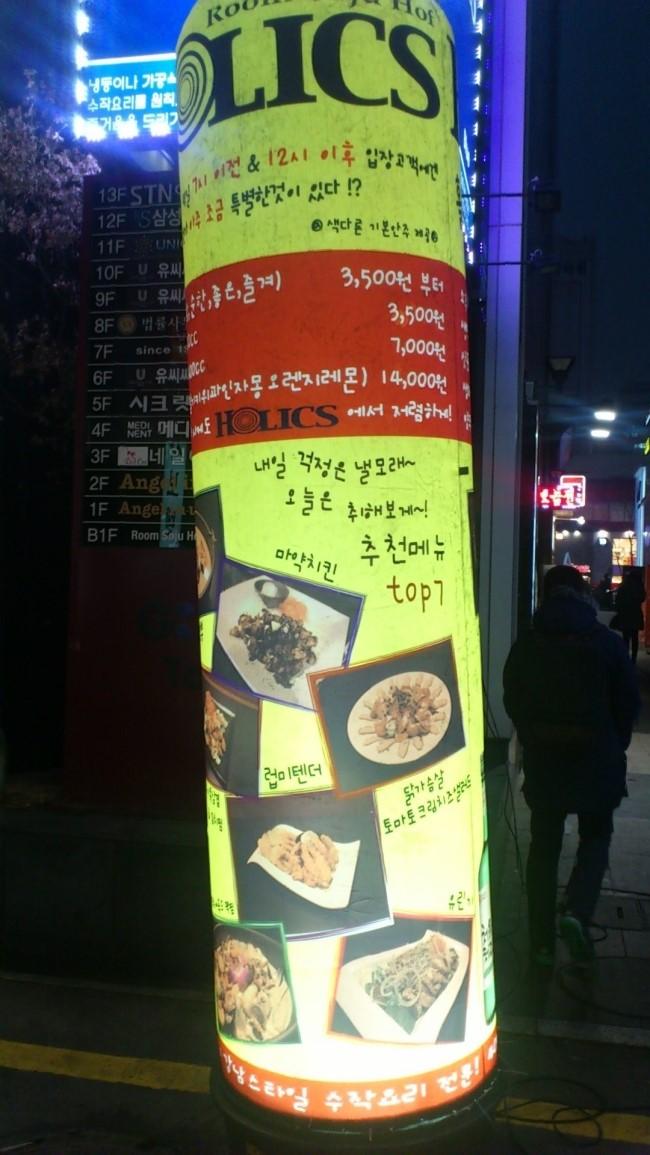 Room Soju Hof
OLICS
7시 이전 & 12시 이후 입장고객에겐
아주 조금 특별한것이 있다!?
색다른 기본안주 제공
순한,좋은,즐겨) 3,500원 부터
3,500원
cc 7,000원
키위파인자몽오렌지레몬) 14,000원
HOLICS 에서 저렴하게!
내일 걱정은 낼모래~
오늘은 취해보게~!
추천메뉴
top7
마약치킨
럽미텐더
닭가슴살
토마토크림치즈샐러드
유린
강남스타일 수작요리 전문!
냉동이나 가공
수작요리를 원칙
즐거움을 드리
13F STN
12F 삼성
11F UNI
10F U 유씨
9F U 유씨
8F 법률사
7F since
6F U 유씨
5F 시크릿
4F MEDI NENT 메디
3F 네일
2F Angel
1F Angel
B1F Room Soju Ho